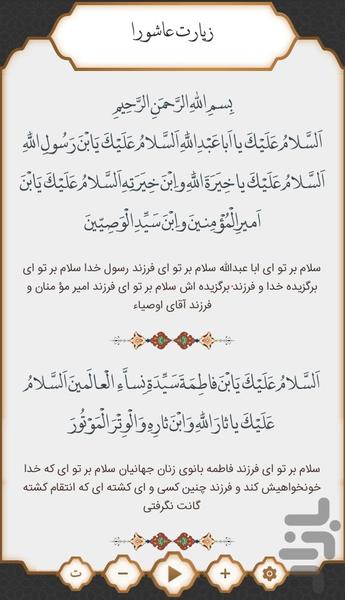 زیارت عاشورا
بِسمِ اللهِ الرَّحمَنِ الرَّحِیمِ
اَلسَّلامُ عَلَیْكَ یا اَبا عَبدِ اللهِ اَلسَّلامُ عَلَیْكَ یَابْنَ رَسُولِ اللهِ
اَلسَّلامُ عَلَیْكَ یا خِیَرَةَ اللهِ وابْنَ خِیَرَتِهِ اَلسَّلامُ عَلَیْكَ یَابْنَ
اَمیرِ الْمُؤْمِنینَ وابْنَ سَیِّدِ الْوَصِیّینَ
سلام بر تو ای ابا عبدالله سلام بر تو ای فرزند رسول خدا سلام بر تو ای
برگزیده خدا و فرزند برگزیده اش سلام بر تو ای فرزند امیر مؤ منان و
فرزند آقای اوصیاء
اَلسَّلامُ عَلَیْكَ یَابْنَ فاطِمَةَ سَیِّدَةِ نِساَّءِ الْعالَمینَ اَلسَّلامُ
عَلَیْكَ یا ثارَ اللهِ وابْنَ ثارِهِ وَالْوِتْرَ الْمَوْتُورَ
سلام بر تو ای فرزند فاطمه بانوی زنان جهانیان سلام بر تو ای که خدا
خونخواهیش کند و فرزند چنین کسی و ای کشته ای که انتقام کشته
گانت نگرفتی
ت − +
بازار